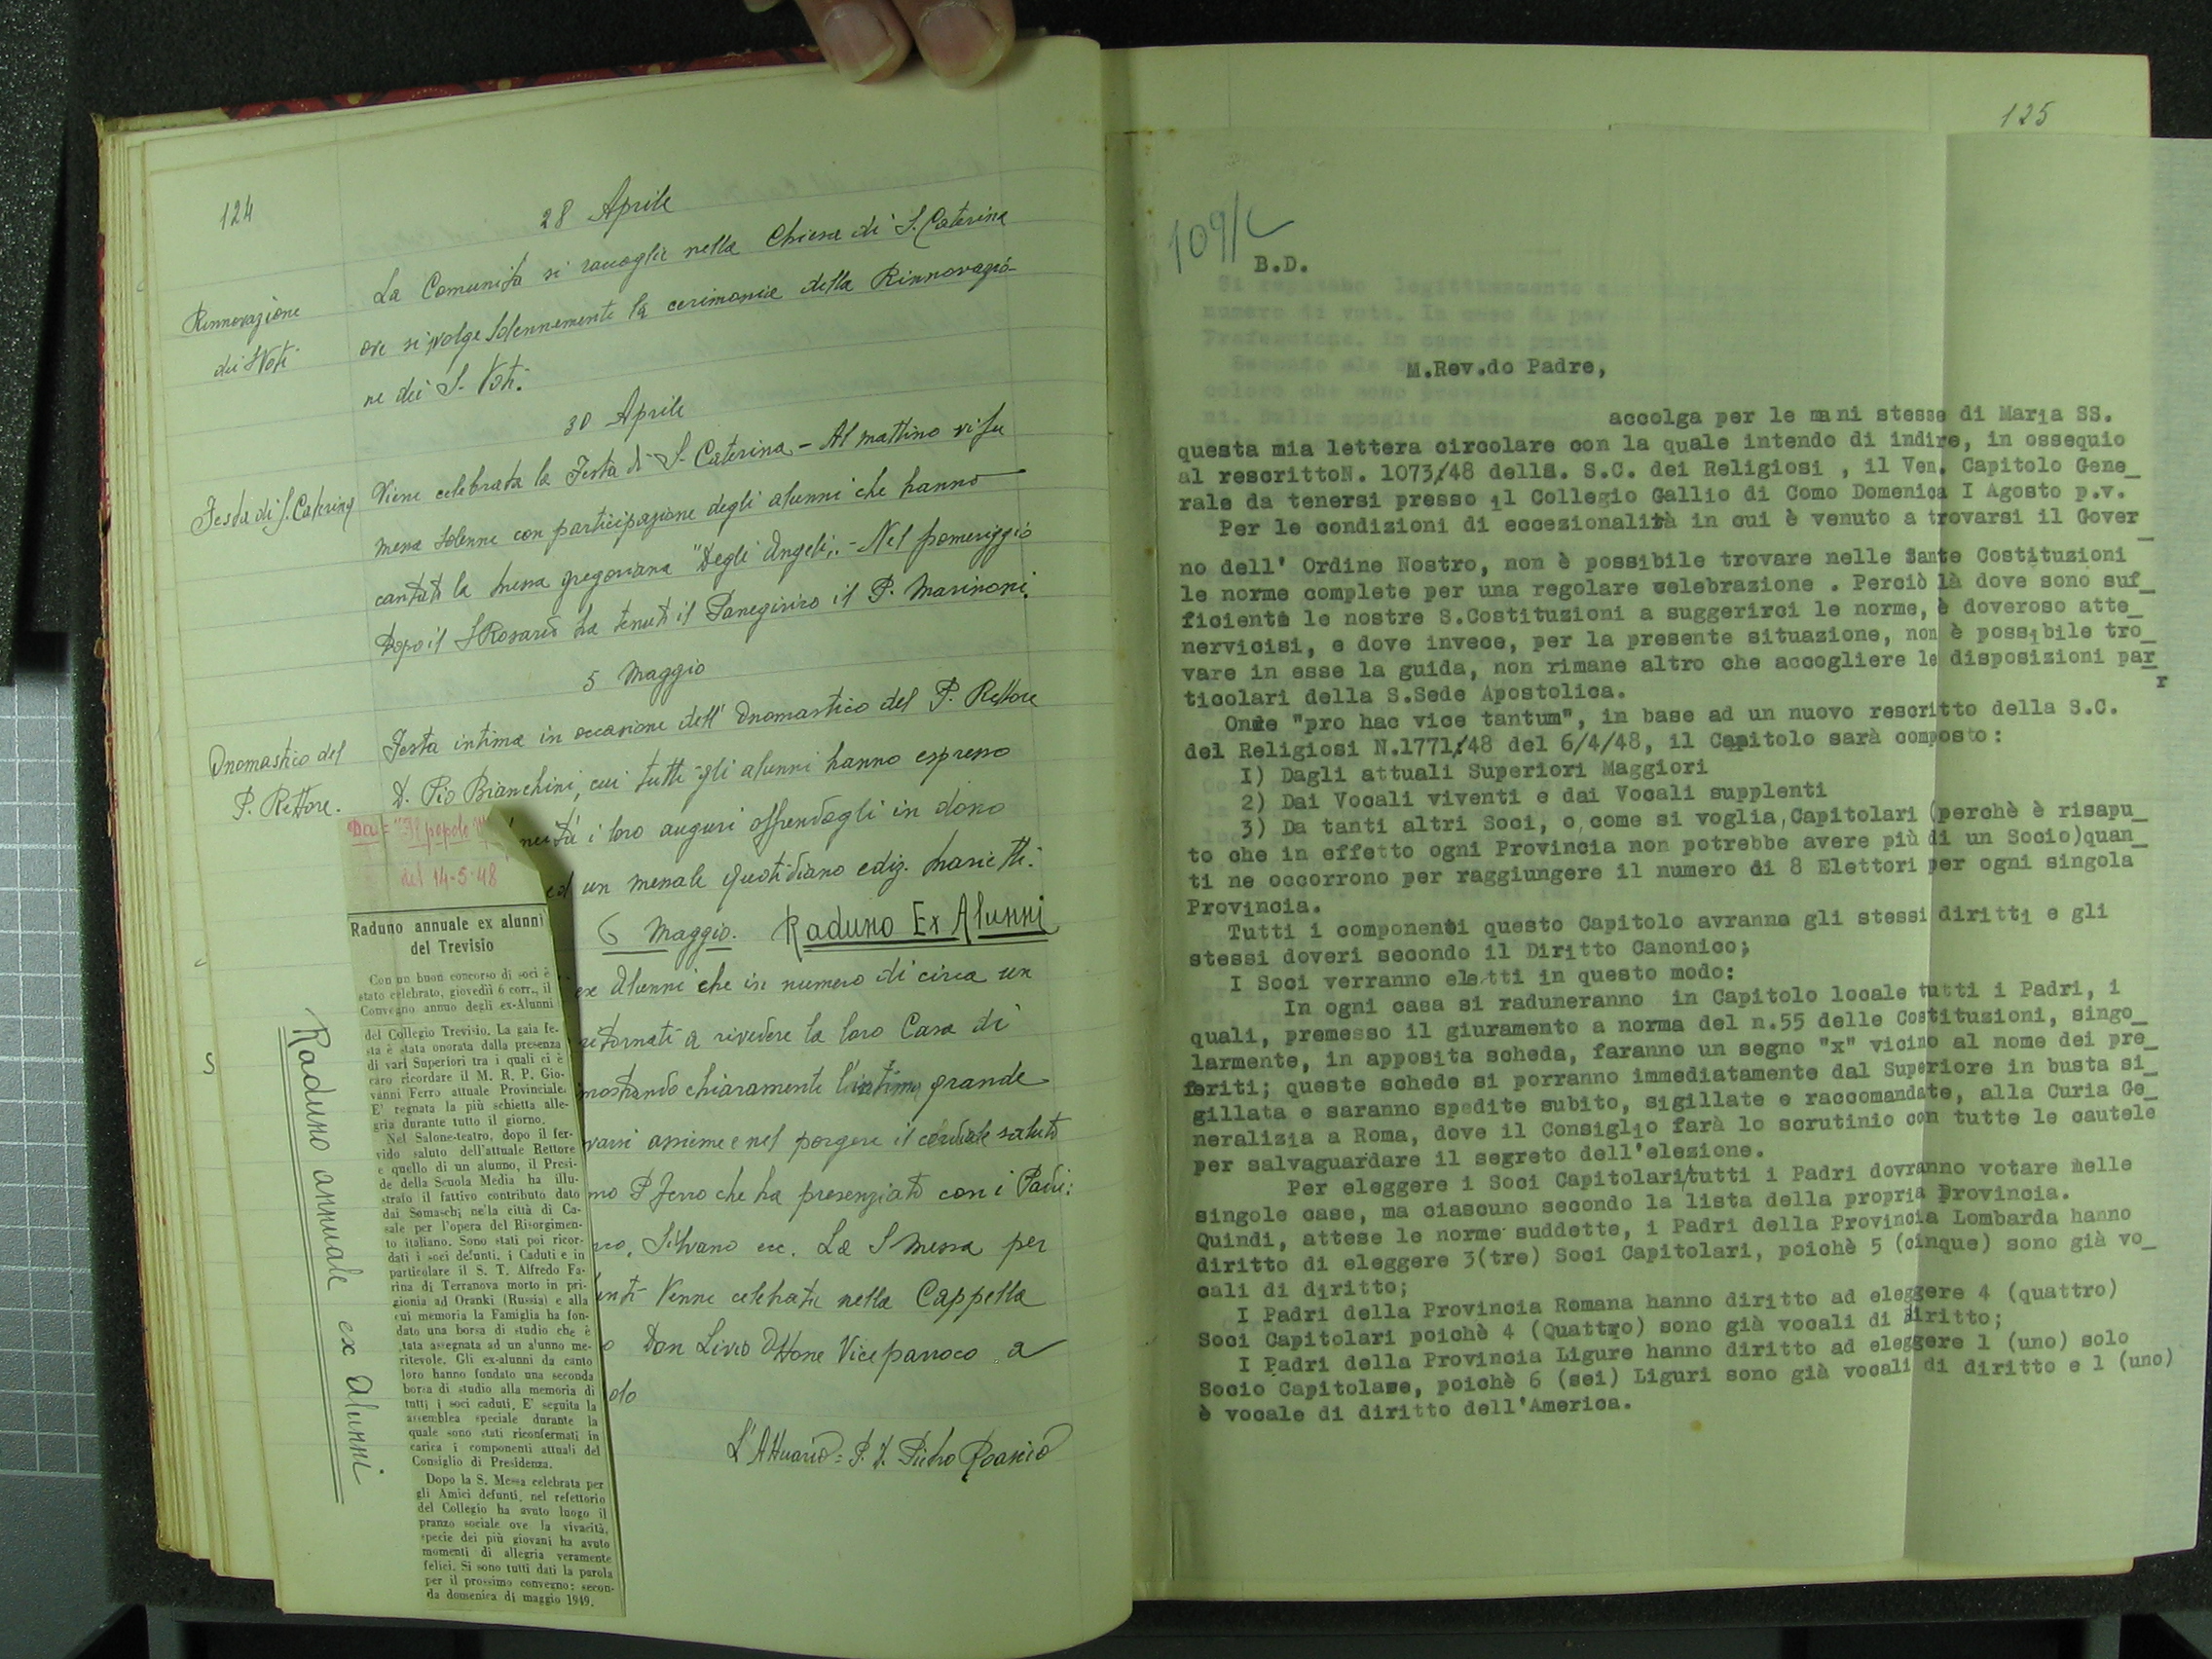 124
28 Aprile
Rinnovazione
dei S Voti
La Comunità si raccoglie nella Chiesa di S. Caterina
ove si svolge solennemente la cerimonia della Rinnovazio-
ne dei S. Voti.
30 Aprile
Festa di S. Caterina
Viene celebrata la Festa di S. Caterina - Al mattino vi fu
messa solenne con participazione degli alunni che hanno
cantato la messa gregoriana "Degli Angeli". - Nel pomeriggio
Dopo il S Rosario ha tenuto il Panegirico il P. Marinoni.
5 Maggio
Onomastico del
P. Rettore.
Festa intima in occasione dell'Onomastico del P. Rettore
D. Pio Bianchini, cui tutti gli alunni hanno espresso
i loro auguri offrendogli in dono
ed un messale quotidiano ediz. marietti.
6 Maggio. Raduno Ex Alunni
ex Alunni che in numero di circa un
ritornati a rivedere la loro Casa di
mostrando chiaramente l'intima grande
varsi assieme e nel porgere il cordiale saluto
mo P Ferro che ha presenziato con i Padri:
co, Silvano ecc. La S Messa per
enti Venne celebrata nella Cappella
o Don Livio Ottone Viceparroco a
do
L'Attuario: P. D. Pietro
Raduno annuale ex alunni
Da: "Il popolo
del 14-5-48
Raduno annuale ex alunni
del Trevisio
Con un buon concorso di soci è
stato celebrato, giovedì 6 corr., il
Convegno annuo degli ex-Alunni
del Collegio Trevisio. La gaia fe-
sta è stata onorata dalla presenza
di vari Superiori tra i quali ci è
caro ricordare il M. R. P. Gio-
vanni Ferro attuale Provinciale.
E' regnata la più schietta alle-
gria durante tutto il giorno.
Nel Salone-teatro, dopo il fer-
vido saluto dell'attuale Rettore
e quello di un alunno, il Presi-
de della Scuola Media ha illu-
strato il fattivo contributo dato
dai Somaschi ne'la città di Ca-
sale per l'opera del Risorgimen-
to italiano. Sono stati poi ricor-
dati i soci defunti, i Caduti e in
particolare il S. T. Alfredo Fa-
rina di Terranova morto in pri-
gionia ad Oranki (Russia) e alla
cui memoria la Famiglia ha fon-
dato una borsa di studio che è
tata assegnata ad un alunno me-
ritevole. Gli ex-alunni da canto
loro hanno fondato una seconda
borsa di studio alla memoria di
tutti i soci caduti. E' seguita la
assemblea speciale durante la
quale sono stati riconfermati in
carica i componenti attuali del
Consiglio di Presidenza.
Dopo la S. Messa celebrata per
gli Amici defunti, nel refettorio
del Collegio ha avuto luogo il
pranzo sociale ove la vivacità,
specie dei più giovani ha avuto
momenti di allegria veramente
felici. Si sono tutti dati la parola
per il prossimo convegno: secon-
da domenica di maggio 1949.
125
109/C
B.D.
M.Rev.do Padre,
accolga per le mani stesse di Maria SS.
questa mia lettera circolare con la quale intendo di indire, in ossequio
al rescrittoN. 1073/48 della. S.C. dei Religiosi , il Ven. Capitolo Gene_
rale da tenersi presso il Collegio Gallio di Como Domenica I Agosto p.v.
Per le condizioni di eccezionalità in cui è venuto a trovarsi il Gover_
no dell' Ordine Nostro, non è possibile trovare nelle Sante Costituzioni
le norme complete per una regolare celebrazione . Perciò là dove sono suf_
ficienti le nostre S.Costituzioni a suggerirci le norme, è doveroso atte_
nervicisi, e dove invece, per la presente situazione, non è possibile tro_
vare in esse la guida, non rimane altro che accogliere le disposizioni par_
ticolari della S.Sede Apostolica.
Onde "pro hac vice tantum", in base ad un nuovo rescritto della S.C.
dei Religiosi N.1771/48 del 6/4/48, il Capitolo sarà composto:
I) Dagli attuali Superiori Maggiori
2) Dai Vocali viventi e dai Vocali supplenti
3) Da tanti altri Soci, o, come si voglia, Capitolari (perchè è risapu_
to che in effetto ogni Provincia non potrebbe avere più di un Socio)quan_
ti ne occorrono per raggiungere il numero di 8 Elettori per ogni singola
Provincia.
Tutti i componenti questo Capitolo avranno gli stessi diritti e gli
stessi doveri secondo il Diritto Canonico;
I Soci verranno eletti in questo modo:
In ogni casa si raduneranno in Capitolo locale tutti i Padri, i
quali, premesso il giuramento a norma del n.55 delle Costituzioni, singo_
larmente, in apposita scheda, faranno un segno "x" vicino al nome dei pre_
feriti; queste schede si porranno immediatamente dal Superiore in busta si_
gillata e saranno spedite subito, sigillate e raccomandate, alla Curia Ge_
neralizia a Roma, dove il Consiglio farà lo scrutinio con tutte le cautele
per salvaguardare il segreto dell'elezione.
Per eleggere i Soci Capitolari/tutti i Padri dovranno votare nelle
singole case, ma ciascuno secondo la lista della propria Provincia.
Quindi, attese le norme suddette, i Padri della Provincia Lombarda hanno
diritto di eleggere 3(tre) Soci Capitolari, poichè 5 (cinque) sono già vo_
cali di diritto;
I Padri della Provincia Romana hanno diritto ad eleggere 4 (quattro)
Soci Capitolari poichè 4 (Quattro) sono già vocali di diritto;
I Padri della Provincia Ligure hanno diritto ad eleggere 1 (uno) solo
Socio Capitolare, poichè 6 (sei) Liguri sono già vocali di diritto e 1 (uno)
è vocale di diritto dell'America.